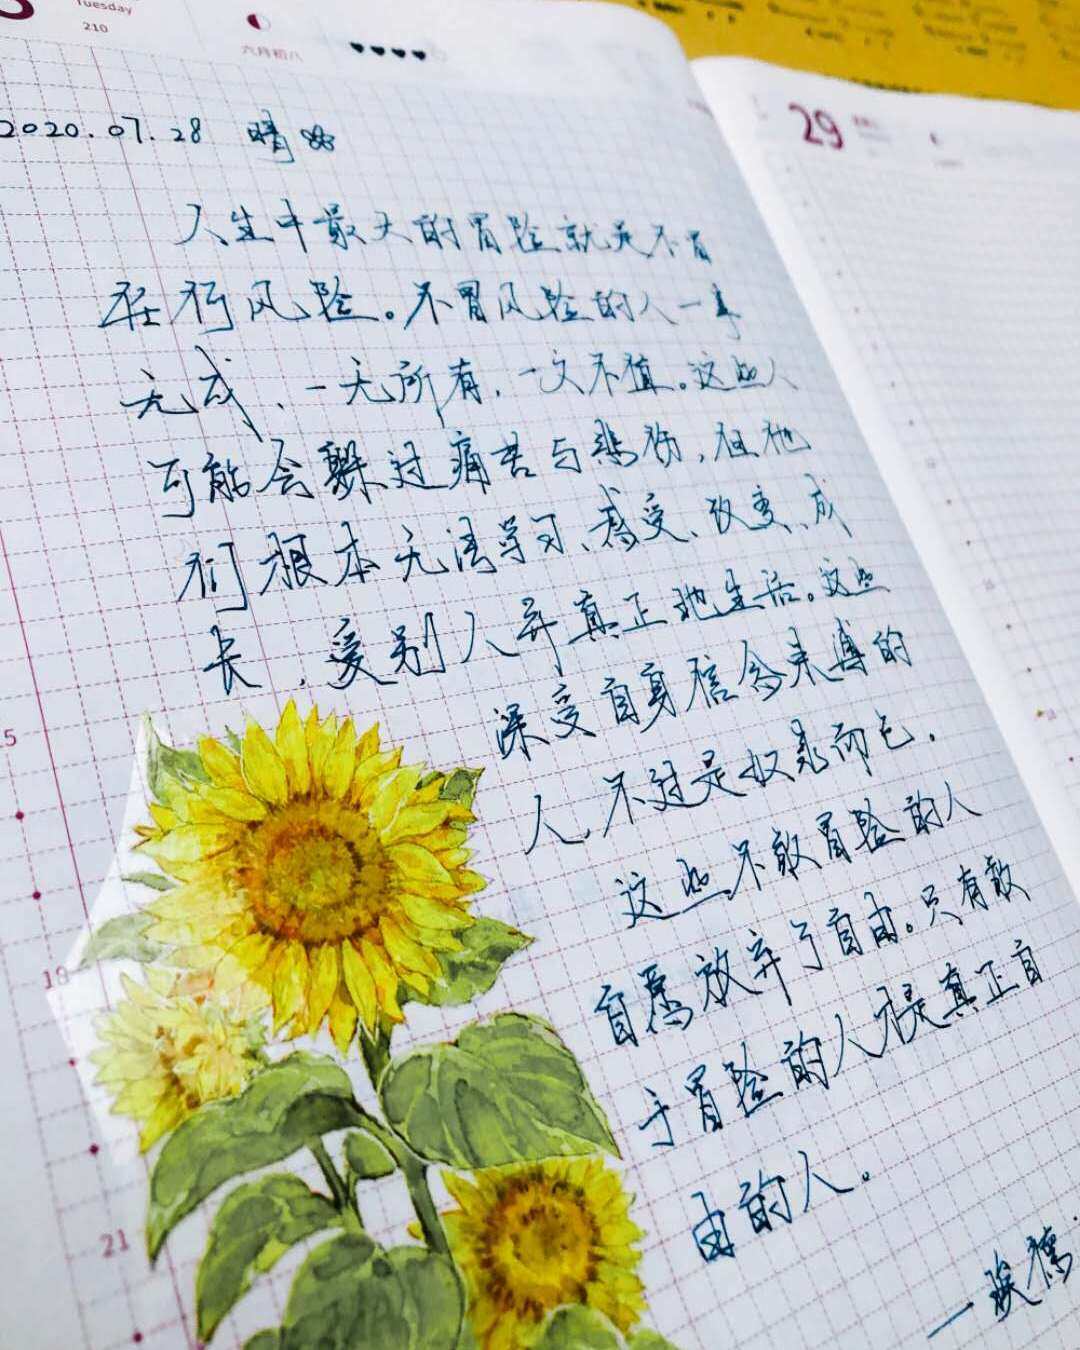 Tuesday
210
六月初八
2020.07.28 晴
人生中最大的冒险就是不冒
任何风险。不冒风险的人一事
无成、一无所有,一文不值。这些人
可能会躲过痛苦与悲伤,但他
们根本无法学习、感受、改变、成
长,爱别人并真正地生活。这些
深受自身信念束缚的
人,不过是奴隶而已,
这些不敢冒险的人
自愿放弃了自由。只有敢
于冒险的人才是真正自
由的人。
29
15
18
21